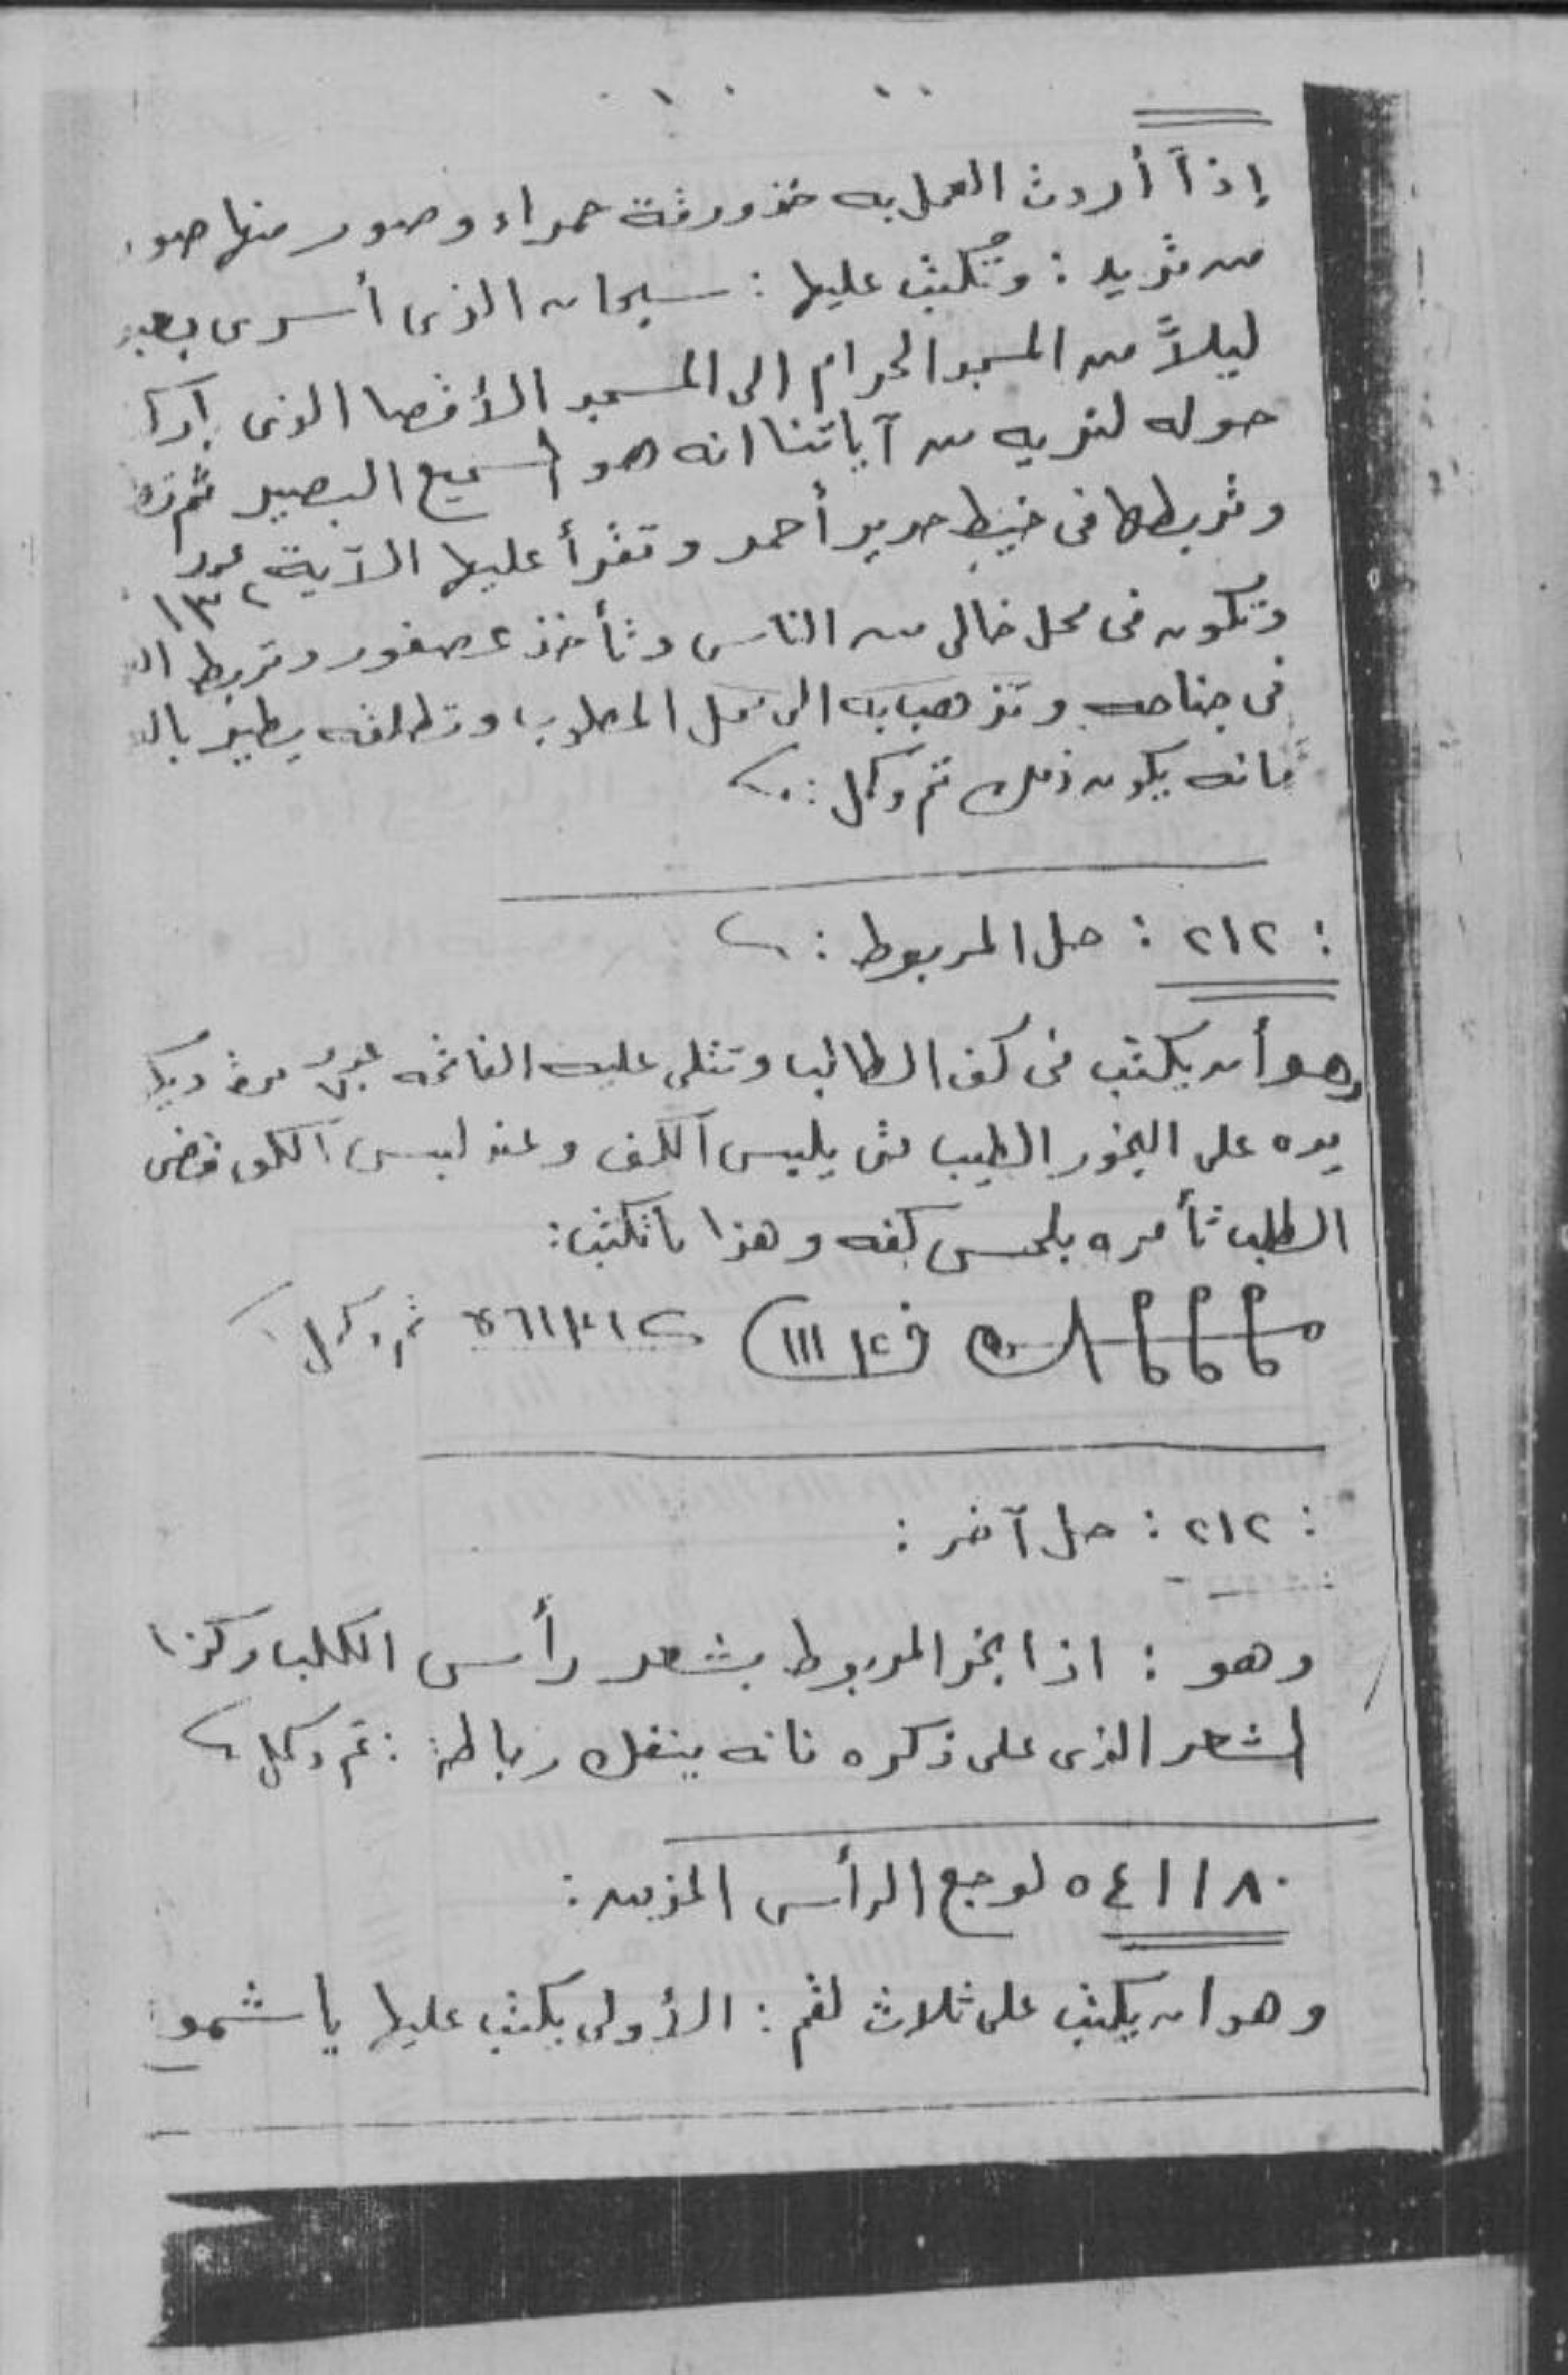 إذاً أردت العمل به خذ ورقة حمراء وصور منها
من تريد : وتكتب عليها : سبحان الذى أسرى
ليلاً من المسجد الحرام الى المسجد الأقصا الذى
حوله لنريه من آياتنا انه هو السميع البصير ثم
وتربطها فى خيط حرير أحمر وتقرأ عليها الآية عدد
وتكون فى محل خالى من الناس وتأخذ عصفور وتربط
فى جناحه وتذهب به الى محل المطلوب وتطلقه يطير
فانه يكون ذلك تم وكمل :
: ٢١٢ : حل المربوط :
وهو أن يكتب فى كف الطالب وتتلى عليه الفاتحه مرة
يده على البخور الطيب متى يلبس الكف وعند لبس الكف
الطلب تأمره بلحس كفه وهذا ما تكتب :
تم وكمل
: ٢١٢ : حل آخر :
وهو : اذا بخر المربوط بشعر رأس الكلب وكذا
الشعر الذى على ذكره فانه ينفك رباطه : تم وكمل
٥٤١١٨٠ لوجع الرأس المزمن :
وهو ان يكتب على ثلاث لقم : الأولى يكتب عليها يا